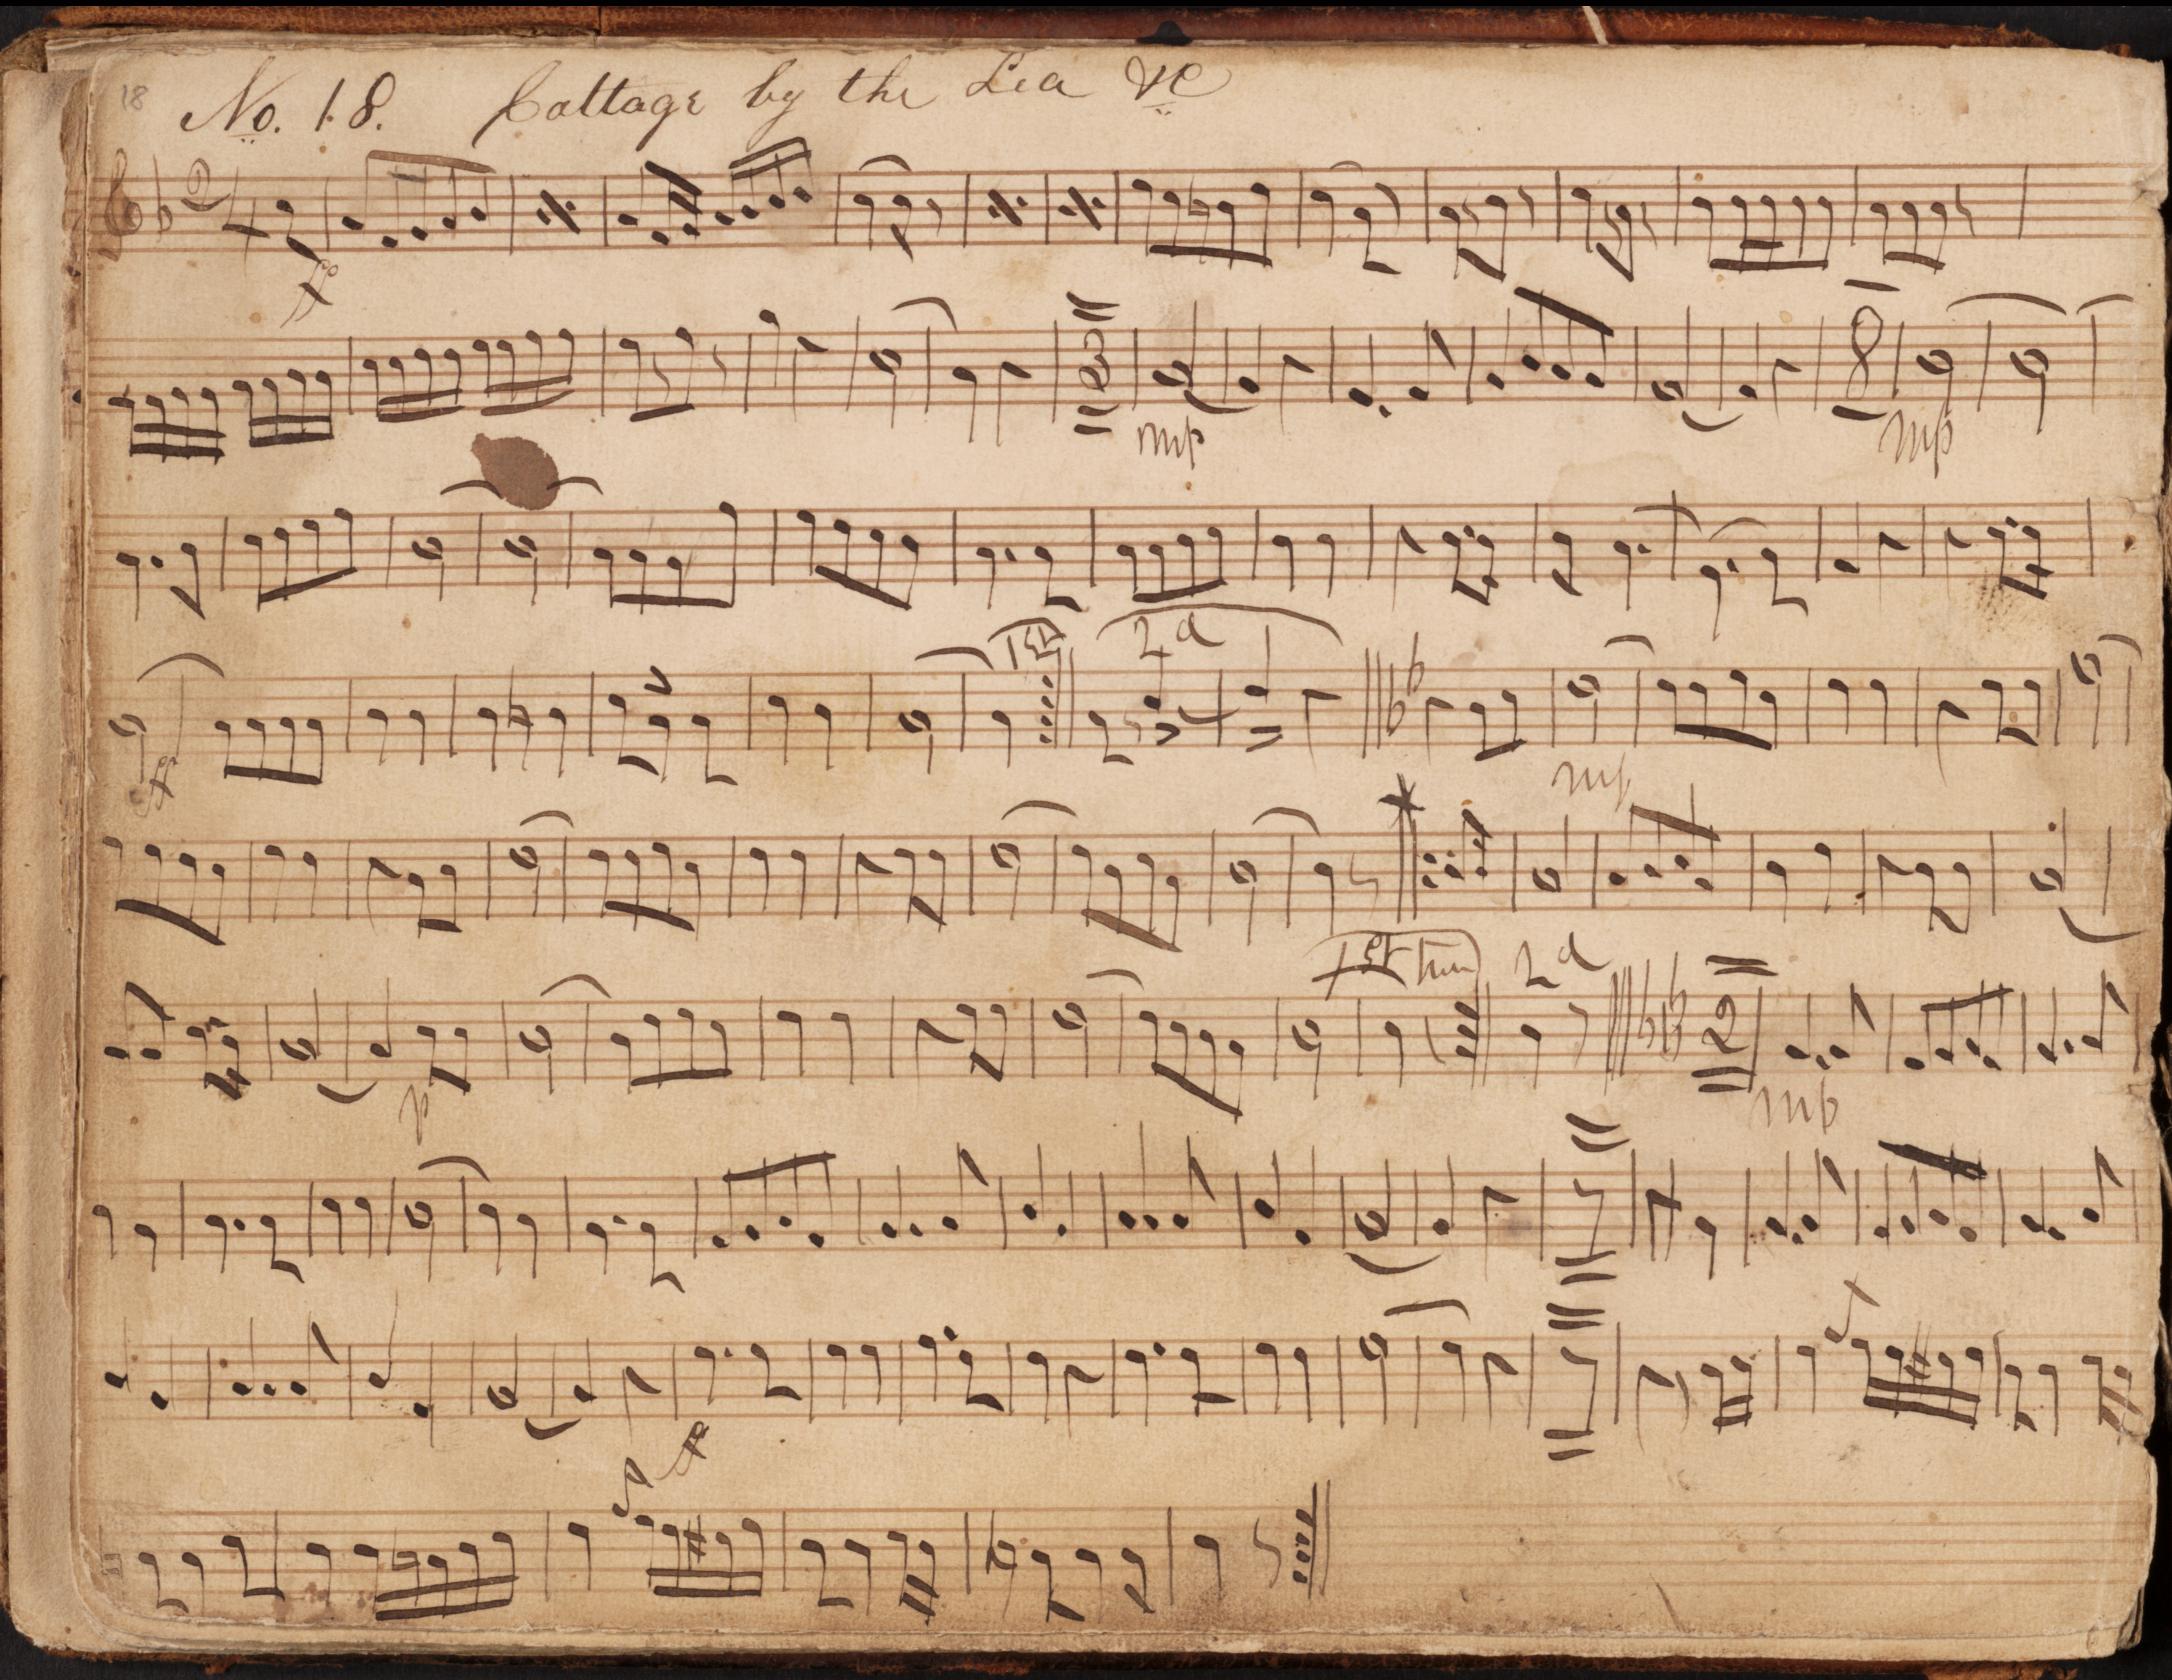 18
No. 18. Cottage by the Lea &c
2
4
f
2
mp
8
mp
1st 2d
f
mp
1st time 2d
p
2
mp
f